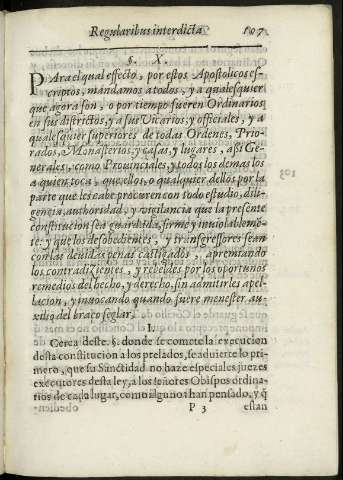 Regularibus interdicta 107
§. X.
Para el qual effecto, por estos Apostolicos es-
criptos, mandamos a todos, y a qualesquier
que agora son, o por tiempo fueren Ordinarios
en sus districtos, y a sus Vicarios, y officiales, y a
qualesquier superiores de todas Ordenes, Prio-
rados, Monasterios, y casas, y lugares, assi Ge-
nerales, como Prouinciales, y todos los demas los
a quien toca, que ellos, o qualquier dellos por la
parte que les cabe procuren con todo estudio, dili-
gencia, authoridad, y vigilancia que la presente
constitucion sea guardada, firme y inuiolableme-
te: y que los desobedientes, y transgressores sean
con las deuidas penas castigados, apremiando
los contradizentes, y rebeldes por los oportunos
remedios del hecho, y derecho, sin admitirles apel-
lacion, y inuocando quando fuere menester au-
xilio del braço seglar.
I.
Cerca deste. §. donde se comete la execucion
desta constitucion a los prelados, se aduierte lo pri-
mero, que su Sanctidad no haze especiales juezes
executores desta ley, a los señores Obispos ordina-
rios de cada lugar, como alguno i han pensado, y q̃
obedien P 3 estan